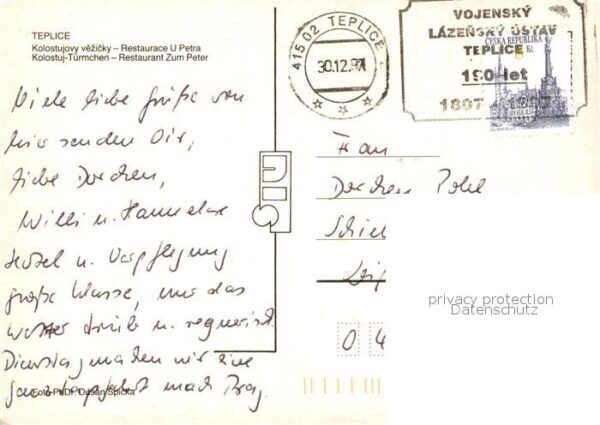 TEPLICE
Kolostujovy věžičky – Restaurace U Petra
Kolostuj-Türmchen – Restaurant Zum Peter
Viele liebe Grüße von
hier senden Dir,
liebe Dorchen,
Willi u. Hannelore
Hotel u. Verpflegung
große Klasse, nur das
Wetter trüb u. regnerisch.
Dienstag machen wir eine
nach Prag.
Foto PhDr. Dušan Spička
415 02 TEPLICE
30.12.97
VOJENSKÝ
LÁZEŇSKÝ ÚSTAV
TEPLICE
190 let
1807 1997
ČESKÁ REPUBLIKA
Kč
OLOMOUC
Frau
Dorchen Pohl
Schie
Leip
0 4
privacy protection
Datenschutz